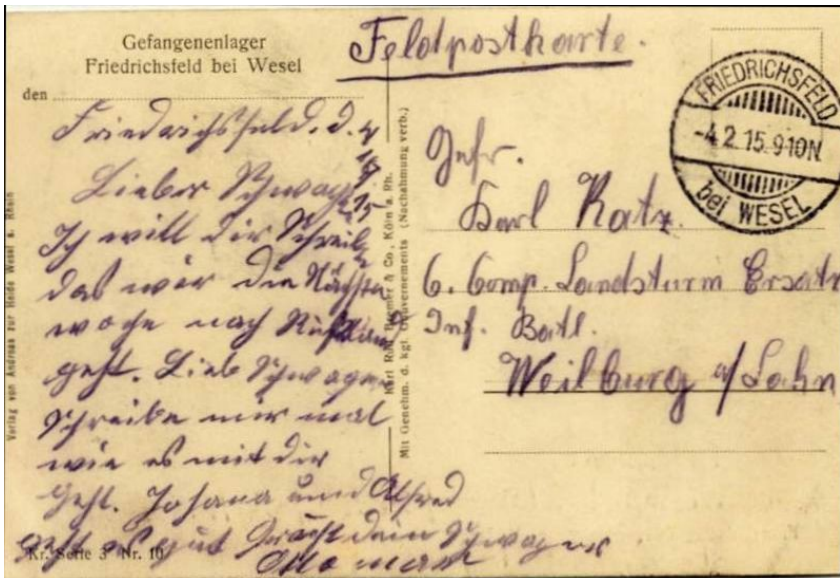 Gefangenenlager
Friedrichsfeld bei Wesel
den
Feldpostkarte.
FRIEDRICHSFELD
-4.2.15.9-10N.
bei WESEL
Friedrichsfeld. d. 4
Lieber Schwager
Ich will dir Schreib
das wir die Nächste
woge nach Rußland
geht. Lieb Schwager
Schreibe mir mal
wie es mit dir
geht. Johana und Alfred
geht es gut Grüßt dein Schwager
Otto
Gefr.
Karl Katz.
6. Comp. Landsturm Ersatz
Inf. Batl.
Weilburg a/Lahn
Verlag von Andreas zur Heide Wesel a. Rhein
Karl Rud. Bremer & Co., Köln a. Rh.
Mit Genehm. d. kgl. Gouvernements (Nachahmung verb.)
Kr. Serie 3 Nr. 10